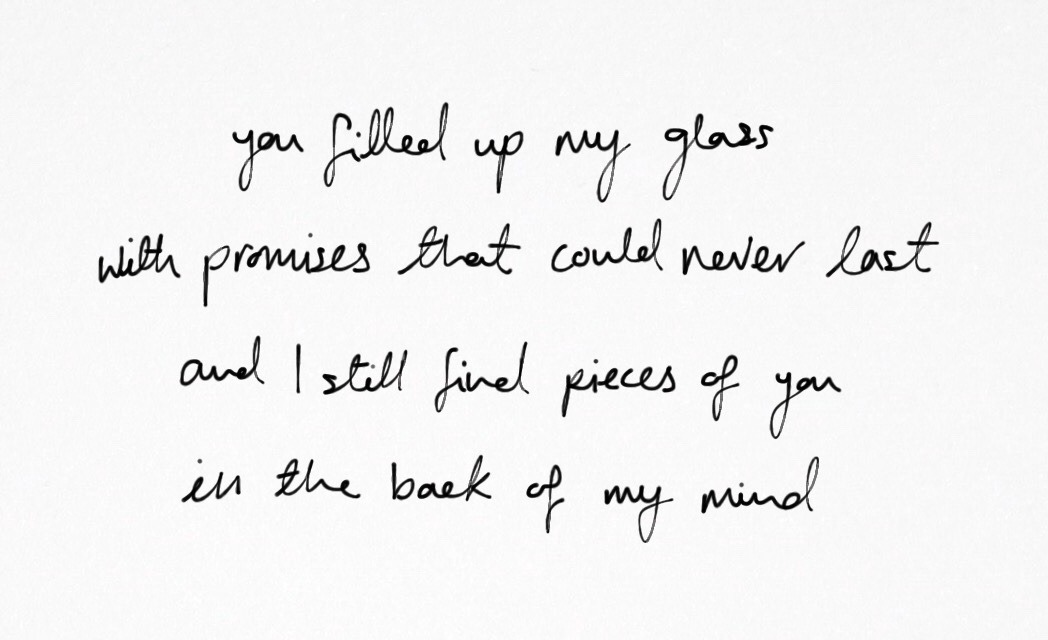 you filled up my glass
with promises that could never last
and I still find pieces of you
in the back of my mind